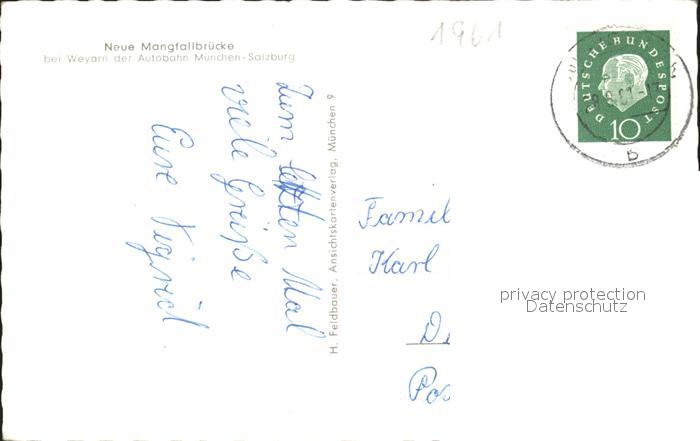 1961
Neue Mangfallbrücke
bei Weyarn der Autobahn München-Salzburg
DEUTSCHE BUNDESPOST
10
B
Zum letzten Mal
viele Grüße
Eure Sigrid
H. Feldbauer, Ansichtskartenverlag, München 9
Famil
Karl
privacy protection
Datenschutz
D
Pos